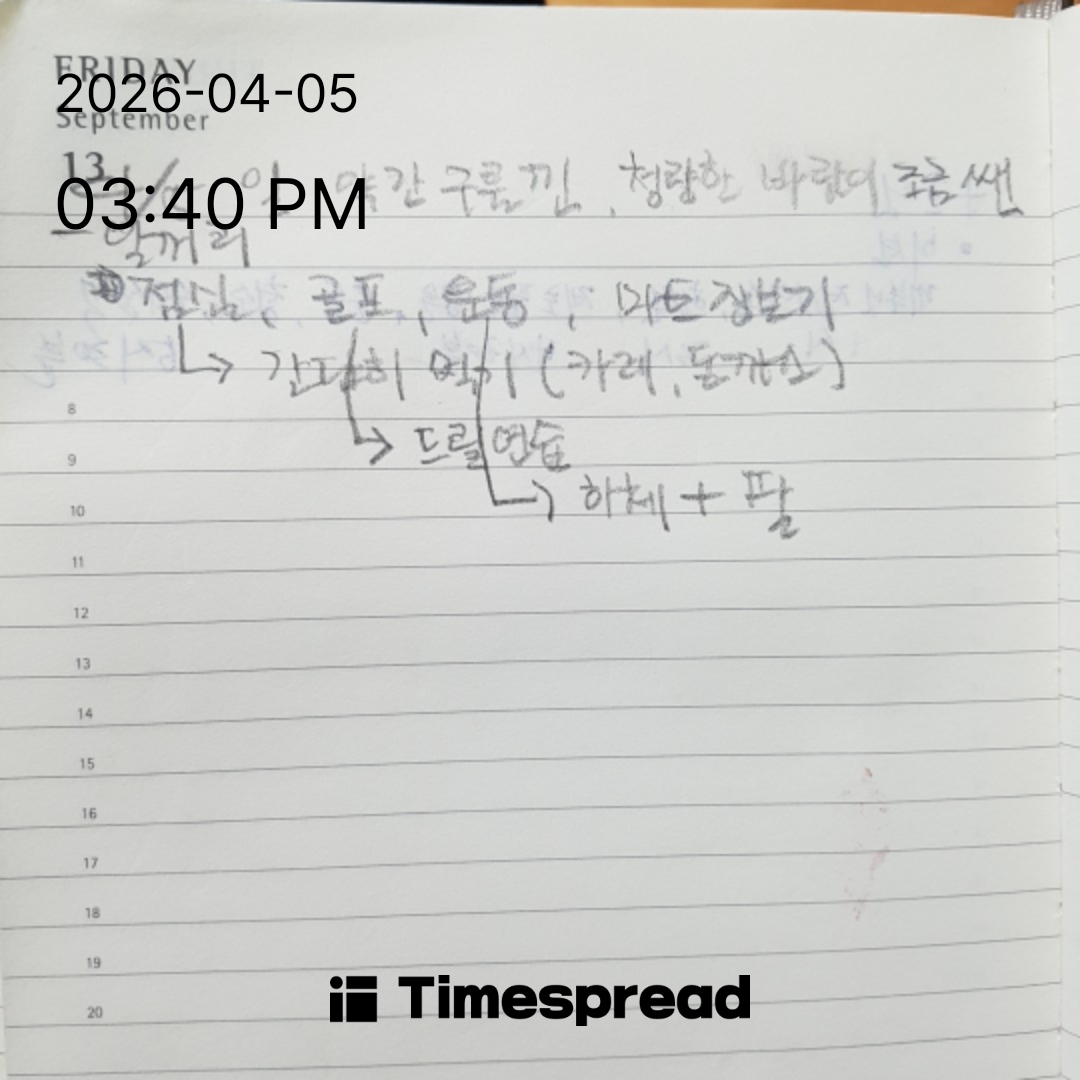 FRIDAY
2026-04-05
September
13
03:40 PM
일 약간 구름낀, 청량한 바람이 조금 쎈
할꺼리
점심, 골프, 운동, 마트장보기
→ 간단히 먹기 (카레, 돈까스)
→ 드릴연습
→ 하체 + 팔
8
9
10
11
12
13
14
15
16
17
18
19
20
Timespread